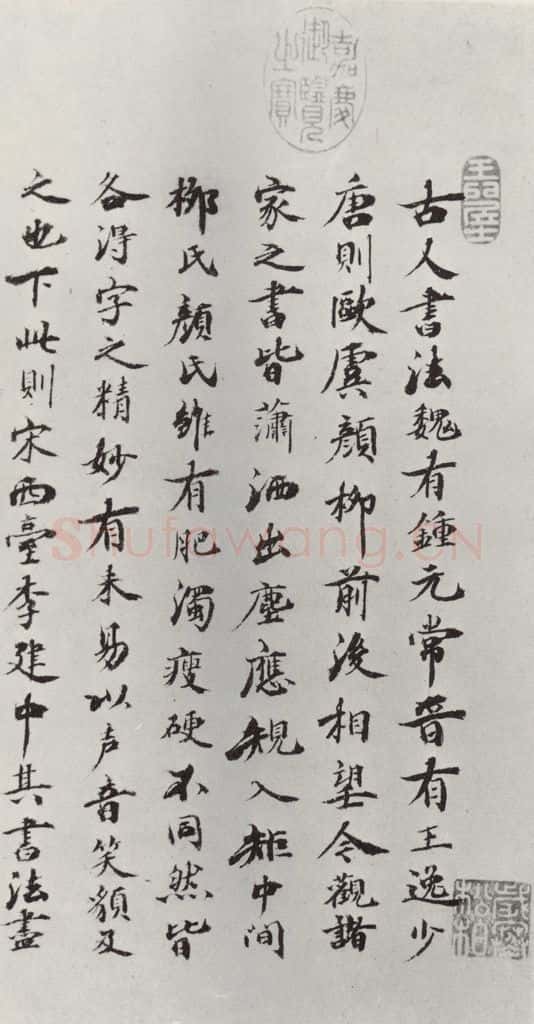 古人書法魏有鍾元常晉有王逸少
唐則歐虞顏柳前後相望今觀諸
家之書皆蕭洒出塵應規入矩中間
柳氏顏氏雖有肥濁瘦硬不同然皆
各得字之精妙有未易以声音笑貌及
之也下此則宋西臺李建中其書法盡
嘉慶御覽之寶
Shufawang.CN